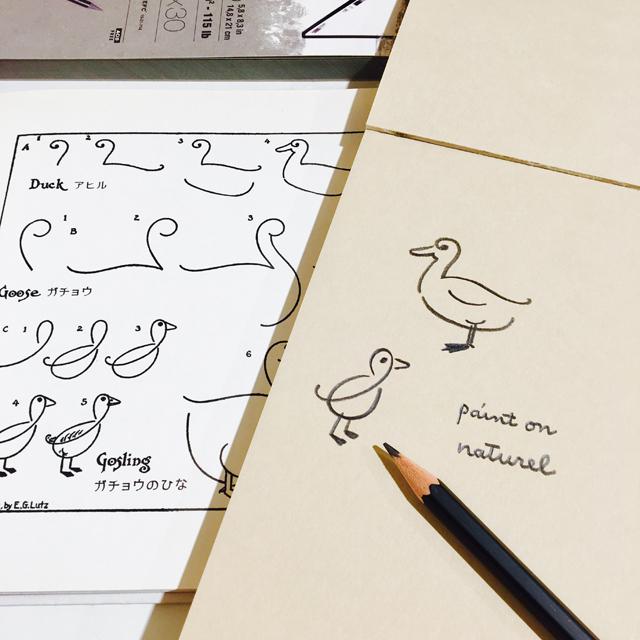 5.8 x 8.3 in
14.8 x 21 cm
² - 115 lb
x30
A 1 2 3 4
Duck アヒル
1 B 2 3
Goose ガチョウ
C 1 2 3
6
4 5
Gosling
ガチョウのひな
by E.G.Lutz
paint on
naturel